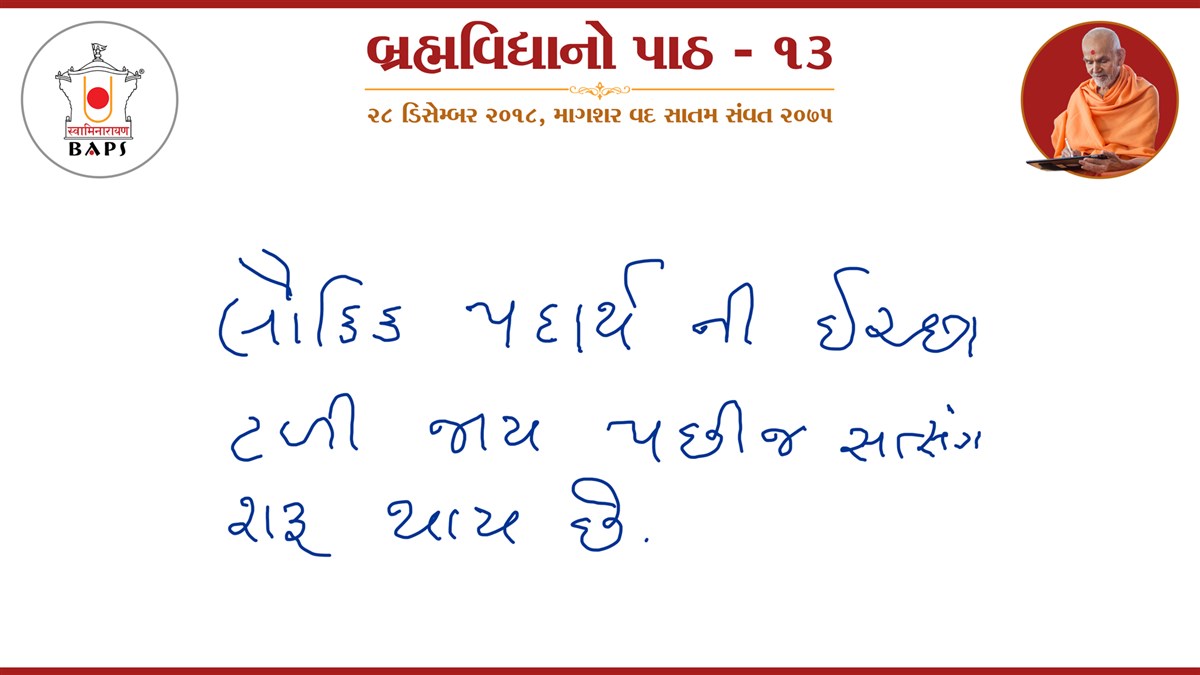 બ્રહ્મવિદ્યાનો પાઠ - ૧૩
૨૮ ડિસેમ્બર ૨૦૧૮, માગશર વદ સાતમ સંવત ૨૦૭૫
स्वामिनारायण
BAPS
લૌકિક પદાર્થ ની ઈચ્છા
ટળી જાય પછીજ સત્સંગ
શરૂ થાય છે.